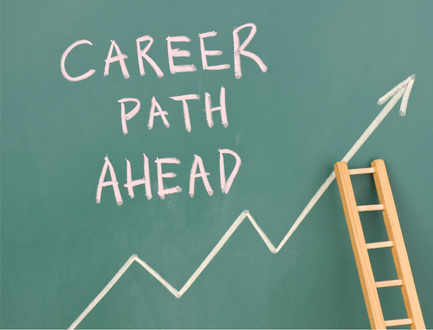 CAREER
PATH
AHEAD